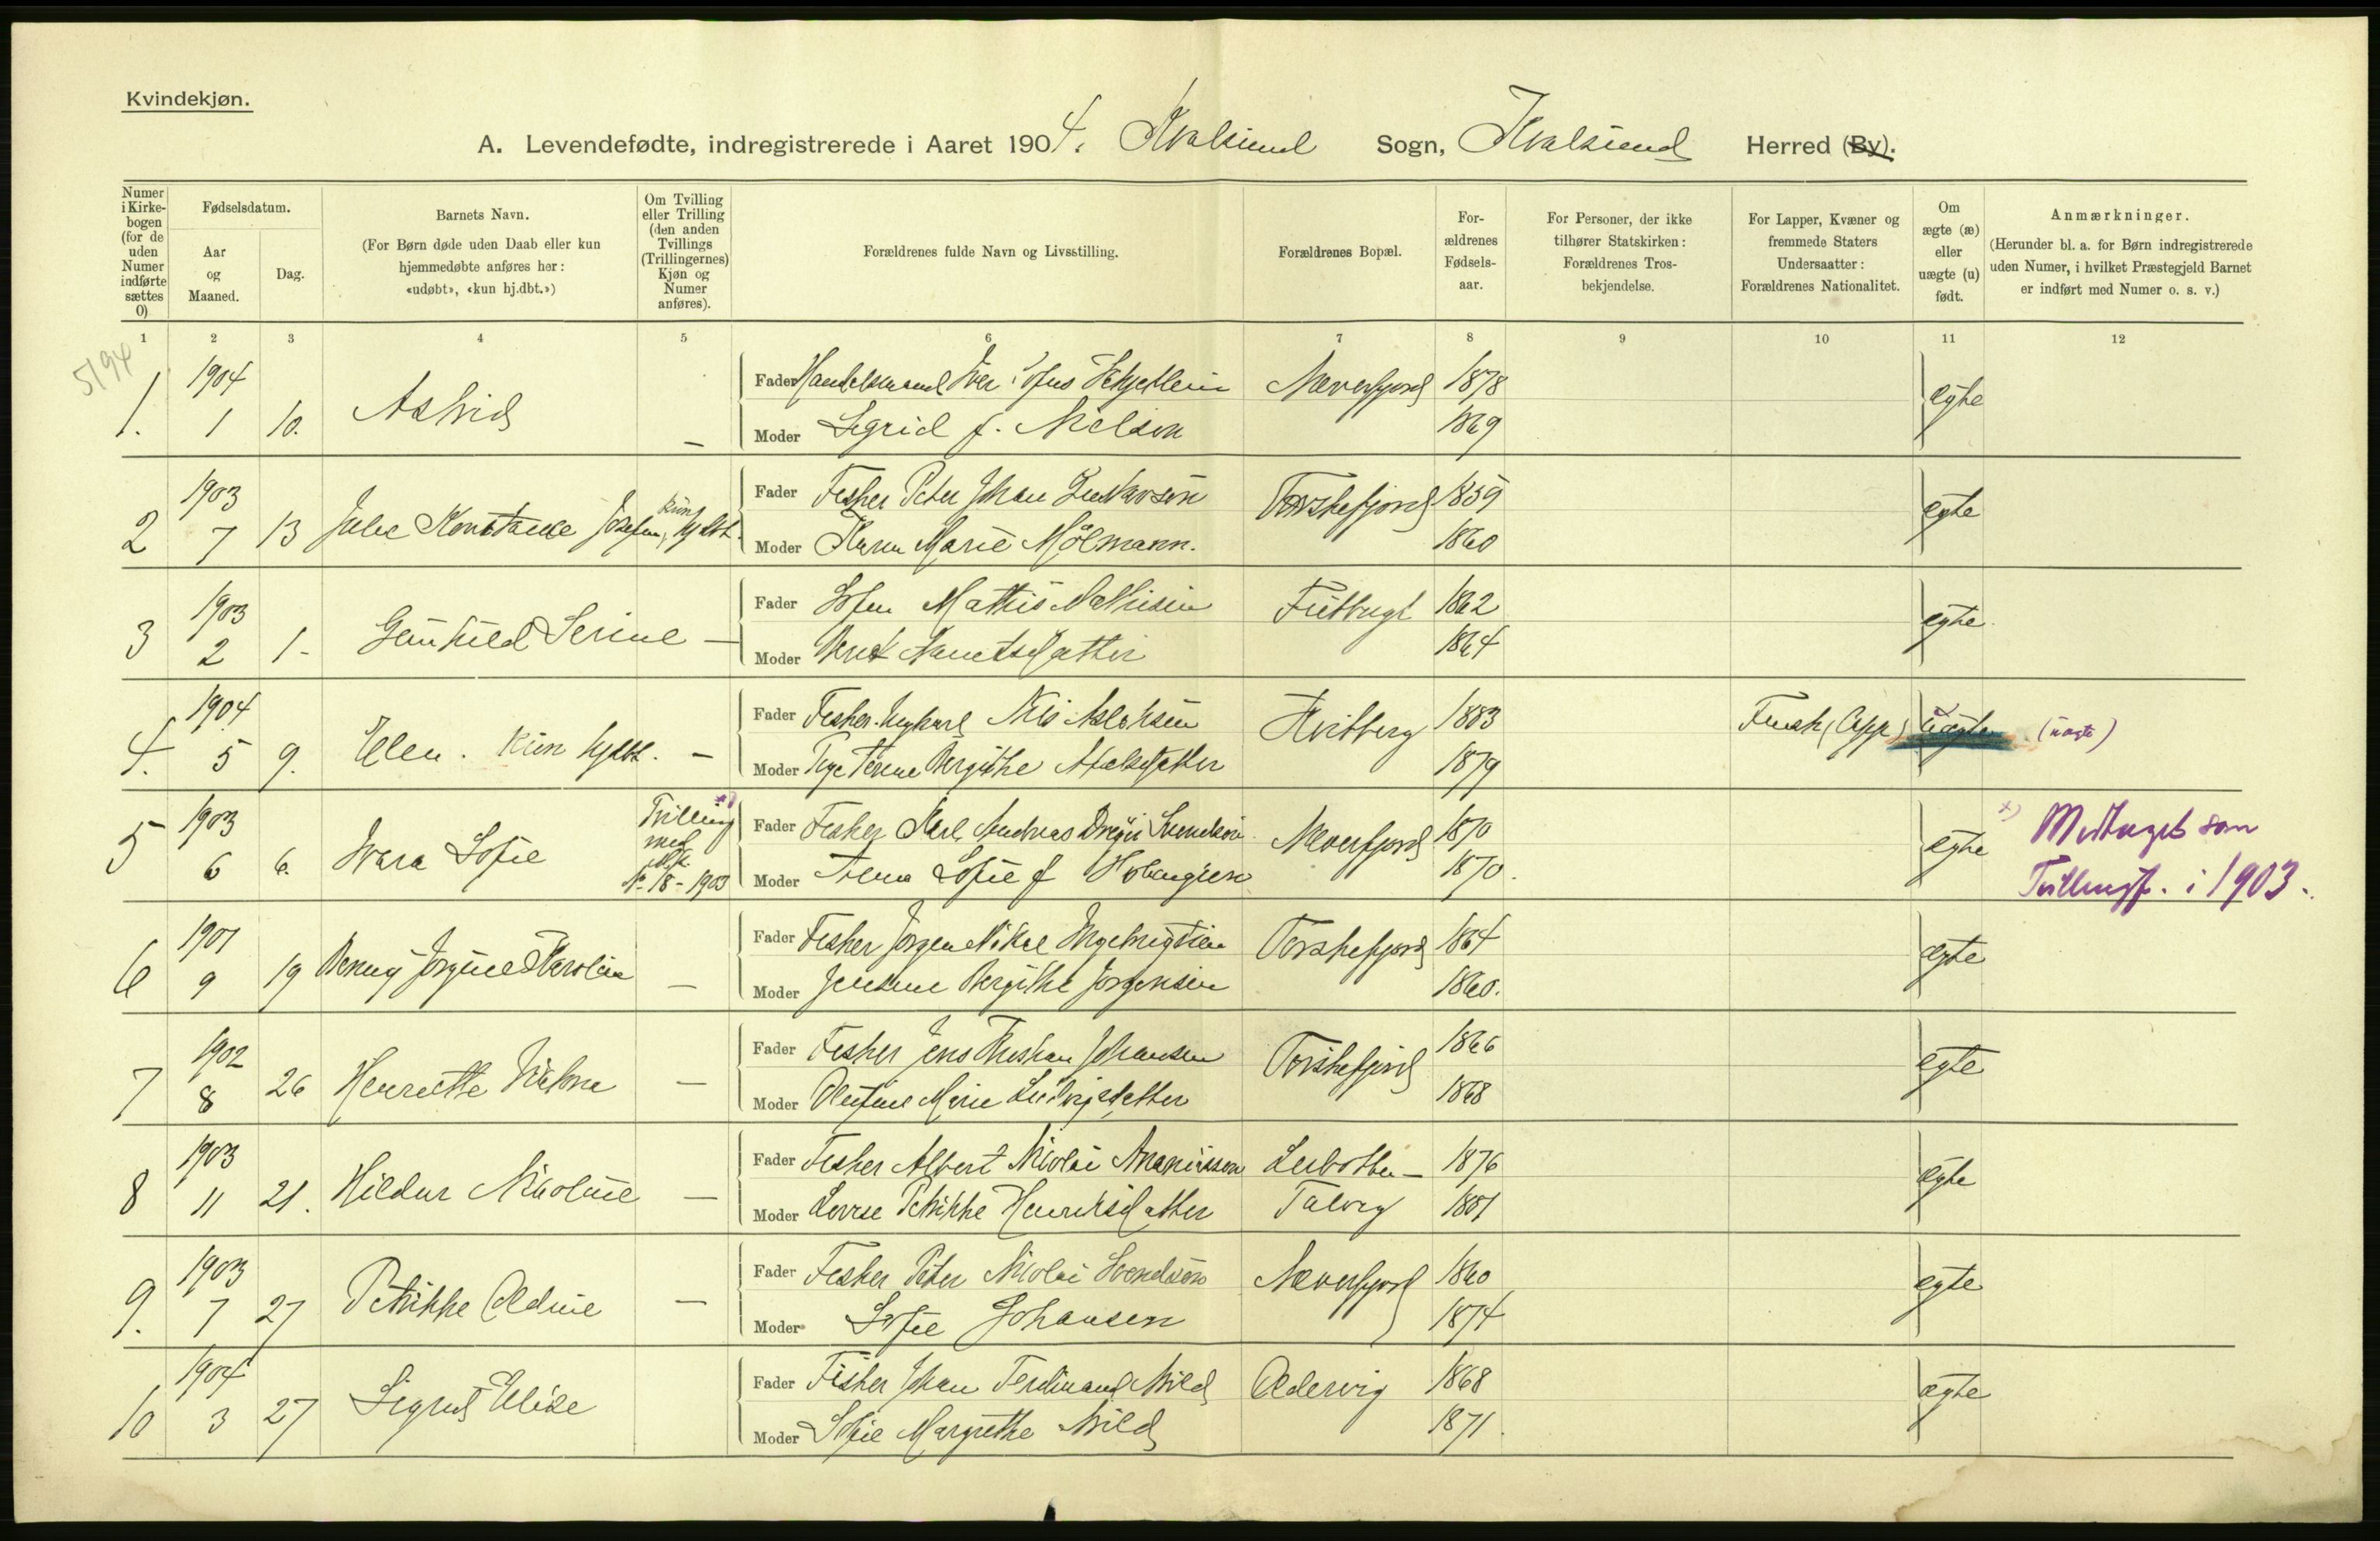 Kvindekjøn.
A. Levendefødte, indregistrerede i Aaret 1904. Kvalsund Sogn, Kvalsund Herred (By).
Numer i Kirkebogen (for de uden Numer indførte sættes 0)
Fødselsdatum.
Aar og Maaned.
Dag.
Barnets Navn.
(For Børn døde uden Daab eller kun hjemmedøbte anføres her: «udøbt», «kun hj.dbt.»)
Om Tvilling eller Trilling (den anden Tvillings (Trillingernes) Kjøn og Numer anføres).
Forældrenes fulde Navn og Livsstilling.
Forældrenes Bopæl.
Forældrenes Fødselsaar.
For Personer, der ikke tilhører Statskirken: Forældrenes Trosbekjendelse.
For Lapper, Kvæner og fremmede Staters Undersaatter: Forældrenes Nationalitet.
Om ægte (æ) eller uægte (u) født.
Anmærkninger.
(Herunder bl. a. for Børn indregistrerede uden Numer, i hvilket Præstegjeld Barnet er indført med Numer o. s. v.)
1 2 3 4 5 6 7 8 9 10 11 12
5194
1904
1. 1 10. Astrid –
Fader Handelsmand Iver Sofus Næverfjord 1878 ægte
Moder Sigrid f. Nielsen 1869
1903
2 7 13 Julie Konstance Josefine, kun hjdbt.
Fader Fisker Peter Johan Gustavsen Torskefjord 1859 egte
Moder Karen Marie Målmann. 1860
1903
3 2 1- Gunhild Serine –
Fader Mathis Mathisen 1862 egte
Moder Berit 1864
1904
4. 5 9. Ellen. Kun hjdbt. –
Fader Fisker Ungkarl Nils Aslaksen Kvitberg 1883 Finsk (Lapp) uægte (uægte)
Moder Pige Bergithe 1879
1903
5 6 6. Ivara Sofie Tvilling med Mk No 18 – 1903
Fader Fisker Karl Andreas Svendsen Næverfjord 1870 egte x) Medtaget som
Moder Sofie f 1870. Tvillingf. i 1903.
1901
6 9 19 Jørgine Karoline –
Fader Fisker Jørgen Mikal Ingebrigtsen Torskefjord 1864 ægte
Moder Jensine Bergithe Jørgensen 1860.
1902
7 8 26 Henriette –
Fader Fisker Jens Kristian Johansen Torskefjord 1866 egte
Moder Olufine Marie Ludvigsdatter 1868
1903
8 11 21. Hildur Nikoline –
Fader Fisker Albert Nicolai Ananiassen Lerbotten – 1876 ægte
Moder Lovise Petrikke Henriksdatter Talvig 1881
1903
9. 7 27 Petrikke Oldine –
Fader Fisker Peter Nicolai Svendsen Næverfjord 1860 egte
Moder Sofie Johansen 1874
1904
10 3 27 Sigrid Elise
Fader Fisker Johan Ferdinand Mild Oldervig 1868 ægte
Moder Sofie Margrethe Mild 1871.